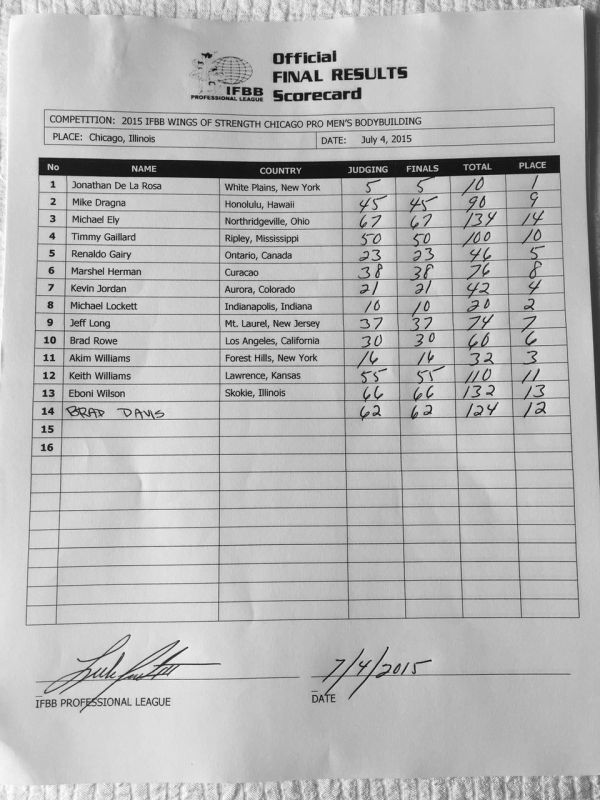 IFBB
PROFESSIONAL LEAGUE
Official
FINAL RESULTS
Scorecard
COMPETITION: 2015 IFBB WINGS OF STRENGTH CHICAGO PRO MEN'S BODYBUILDING
PLACE: Chicago, Illinois DATE: July 4, 2015
No NAME COUNTRY JUDGING FINALS TOTAL PLACE
1 Jonathan De La Rosa White Plains, New York 5 5 10 1
2 Mike Dragna Honolulu, Hawaii 45 45 90 9
3 Michael Ely Northridgeville, Ohio 67 67 134 14
4 Timmy Gaillard Ripley, Mississippi 50 50 100 10
5 Renaldo Gairy Ontario, Canada 23 23 46 5
6 Marshel Herman Curacao 38 38 76 8
7 Kevin Jordan Aurora, Colorado 21 21 42 4
8 Michael Lockett Indianapolis, Indiana 10 10 20 2
9 Jeff Long Mt. Laurel, New Jersey 37 37 74 7
10 Brad Rowe Los Angeles, California 30 30 60 6
11 Akim Williams Forest Hills, New York 16 16 32 3
12 Keith Williams Lawrence, Kansas 55 55 110 11
13 Eboni Wilson Skokie, Illinois 66 66 132 13
14 BRAD DAVIS 62 62 124 12
15
16
7/4/2015
IFBB PROFESSIONAL LEAGUE DATE